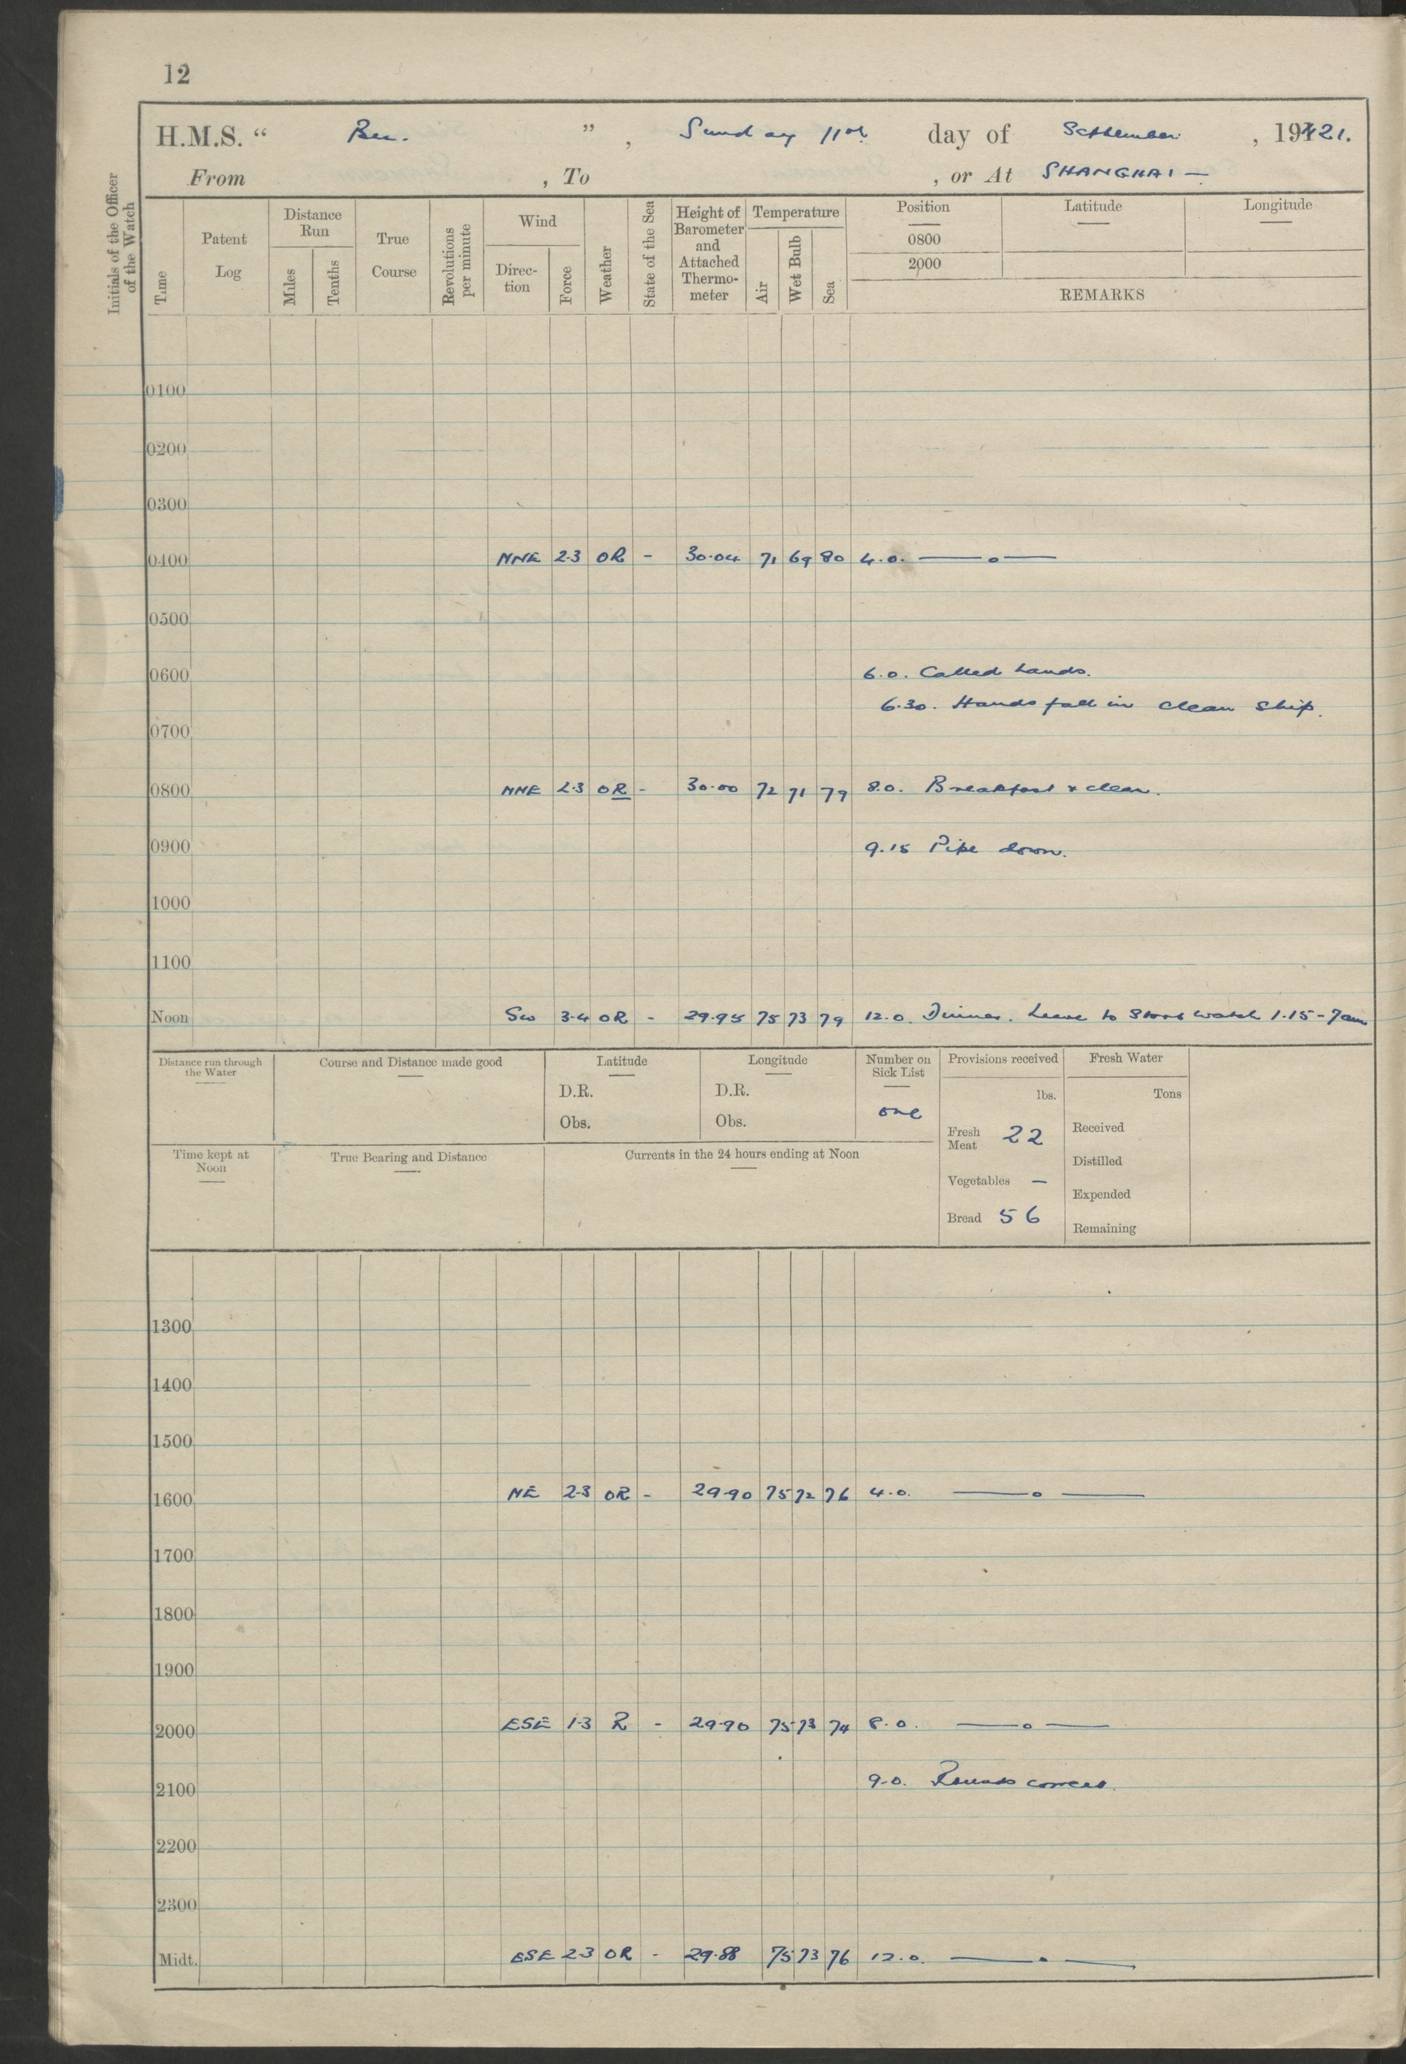 12
H.M.S. " Bee. ", Sunday 11th day of September, 1921.
From , To , or At SHANGHAI —
Initials of the Officer of the Watch
Time Patent Log Distance Run Miles Tenths True Course Revolutions per minute Wind Direc-tion Force Weather State of the Sea Height of Barometer and Attached Thermo-meter Temperature Air Wet Bulb Sea Position 0800 2000 Latitude Longitude
REMARKS
0100
0200
0300
0400 NNE 2-3 OR - 30.04 71 69 80 4.0. —o—
0500
0600 6.0. Called hands.
6.30. Hands fall in clean ship.
0700
0800 NNE 2-3 OR - 30.00 72 71 79 8.0. Breakfast & clean.
0900 9.15 Pipe down.
1000
1100
Noon SW 3-4 OR - 29.95 75 73 79 12.0. Dinner. Leave to Starb watch 1.15-7am
Distance run through the Water
Course and Distance made good
Latitude D.R. Obs.
Longitude D.R. Obs.
Number on Sick List one
Provisions received lbs.
Fresh Meat 22
Vegetables —
Bread 56
Fresh Water Tons
Received
Distilled
Expended
Remaining
Time kept at Noon
True Bearing and Distance
Currents in the 24 hours ending at Noon
1300
1400
1500
1600 NE 2-3 OR - 29.90 75 72 76 4.0. —o—
1700
1800
1900
2000 ESE 1-3 R - 29.90 75 73 74 8.0. —o—
2100 9.0. Rounds correct.
2200
2300
Midt. ESE 2-3 OR - 29.88 75 73 76 12.0. —o—